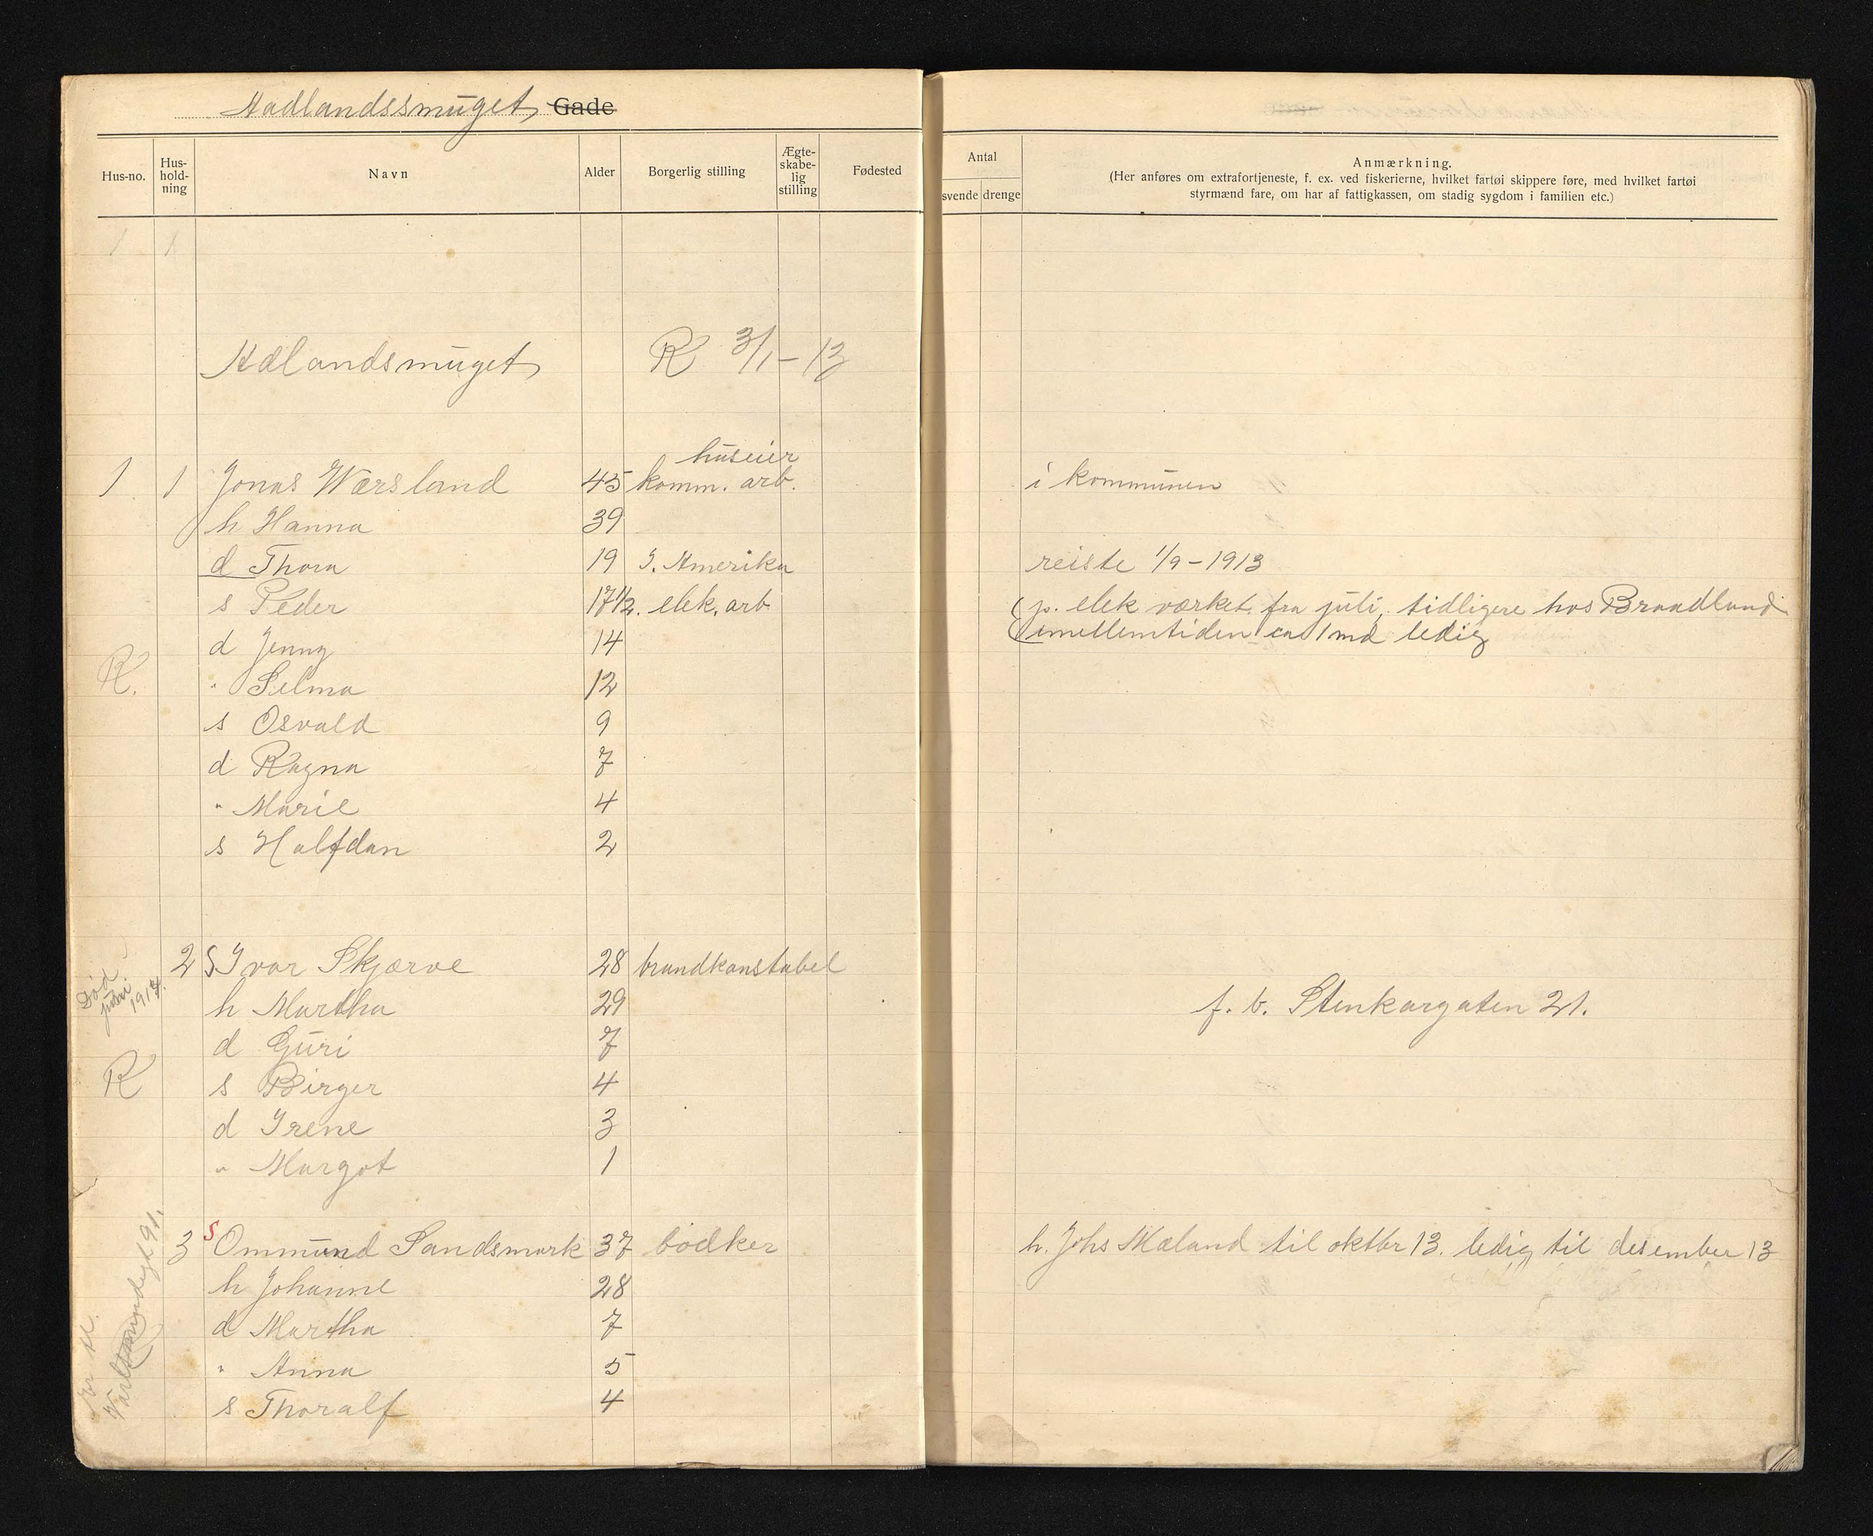 Aadlandssmuget, Gade
Hus-no. Hus-hold-ning Navn Alder Borgerlig stilling Ægte-skabe-lig stilling Fødested Antal svende drenge Anmærkning.
(Her anføres om extrafortjeneste, f. ex. ved fiskerierne, hvilket fartøi skippere føre, med hvilket fartøi
styrmænd fare, om har af fattigkassen, om stadig sygdom i familien etc.)
1 1
Adlandsmuget, R 3/1-13
huseier
1 1 Jonas Wersland 45 komm. arb. i kommunen
h Hanna 39
d Thora 19 I. Amerika reiste 1/9-1913
s Peder 17 1/2. elek. arb p. elek værket fra juli, tidligere hos Braadland
imellemtiden ca 1 md ledig
d Jenny 14
R. " Selma 12
s Osvald 9
d Ragna 7
" Marie 4
s Halfdan 2
2 S Ivar Skjærve 28 brandkonstabel
Død
h Martha 29 f. b. Stenkargaten 21.
d Guri 7
R s Birger 4
d Irene 3
" Margot 1
3 S Ommund Sandsmark 37 bødker h. Johs Mæland til oktbr 13. ledig til desember 13
h Johanne 28
d Martha 7
" Anna 5
s Thoralf 4